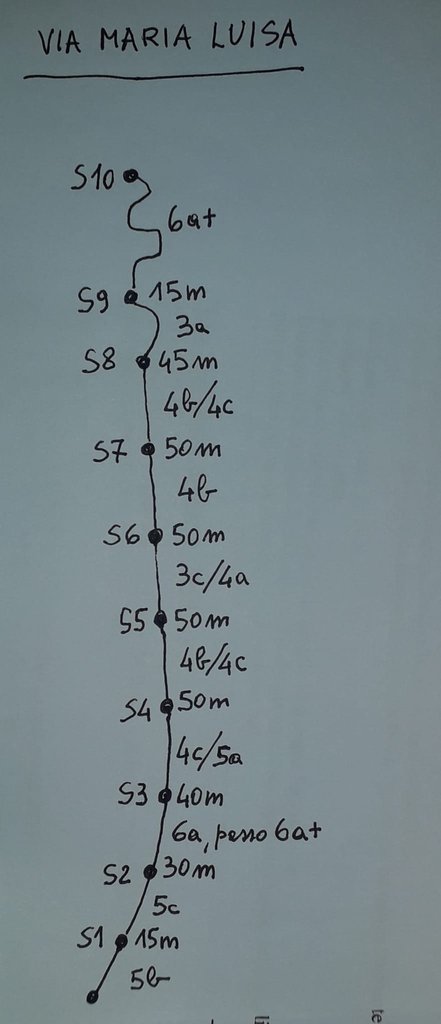 VIA MARIA LUISA
S10
6a+
S9 15m
3a
S8 45m
4b/4c
S7 50m
4b
S6 50m
3c/4a
S5 50m
4b/4c
S4 50m
4c/5a
S3 40m
6a, passo 6a+
S2 30m
5c
S1 15m
5b